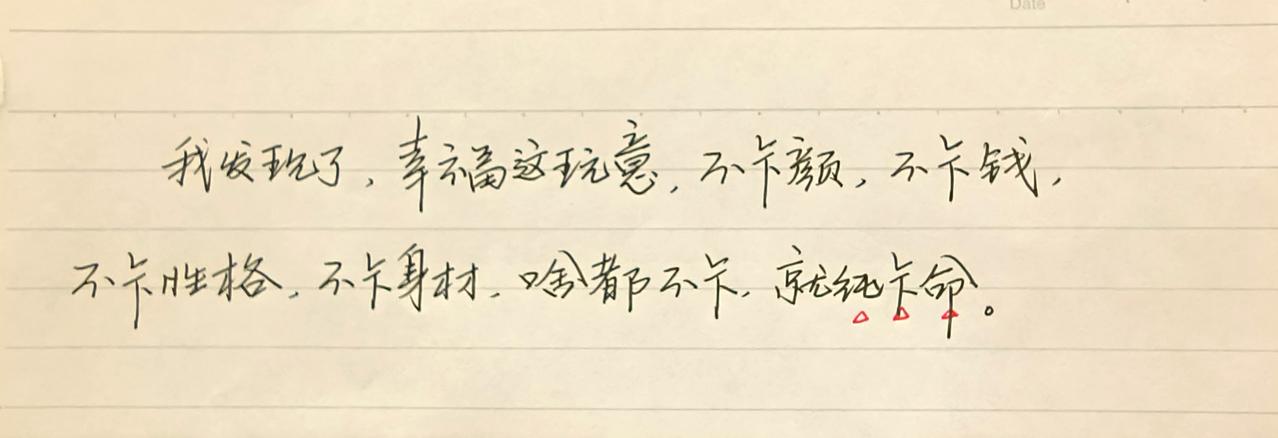 Date
我发现了，幸福这玩意，不卡颜，不卡钱，
不卡性格，不卡身材，啥都不卡，就纯卡命。